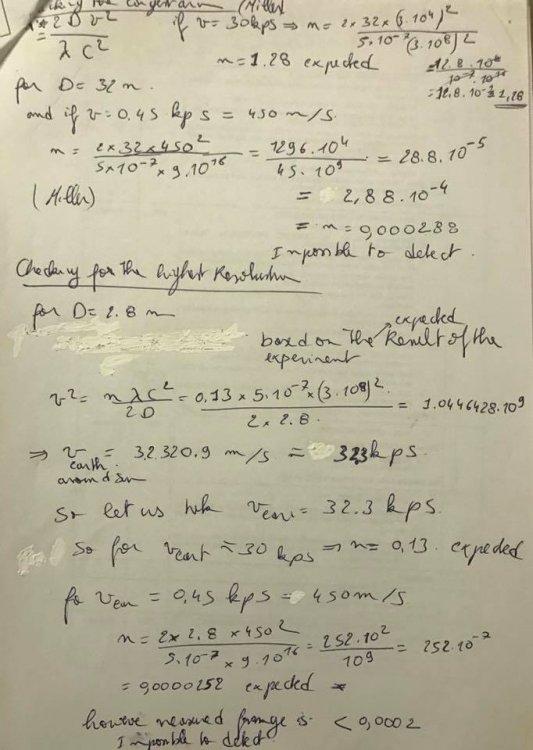 (Miller
n = 2 D v² / λ C²
if v = 30 kps ⇒ n = 2 × 32 × (3.10⁴)² / 5.10⁻⁷ (3.10⁸)²
n = 1.28 expected
= 12.8.10⁻¹ = 1,28
for D = 32 m.
and if v = 0,45 kps = 450 m/s.
n = 2 × 32 × 450² / 5×10⁻⁷ × 9.10¹⁶ = 1296.10⁴ / 45.10⁹ = 28.8.10⁻⁵
(Miller)
= 2,88.10⁻⁴
= n = 0,000288
Impossible to detect.
Checking for the highest Resolution
for D = 2.8 m
expected
based on the Result of the
experiment
v² = n λ C² / 2D = 0,13 × 5.10⁻⁷ × (3.10⁸)² / 2 × 2.8 = 1.0446428.10⁹
⇒ v earth around sun = 32320.9 m/s = 32.3 kps.
So let us take v = 32.3 kps.
So for v ≈ 30 kps ⇒ n = 0,13. expected
for v = 0,45 kps = 450 m/s
n = 2 × 2.8 × 450² / 5.10⁻⁷ × 9.10¹⁶ = 252.10² / 10⁹ = 252.10⁻⁷
= 0,0000252 expected
however measured fringe is < 0,0002
Impossible to detect.